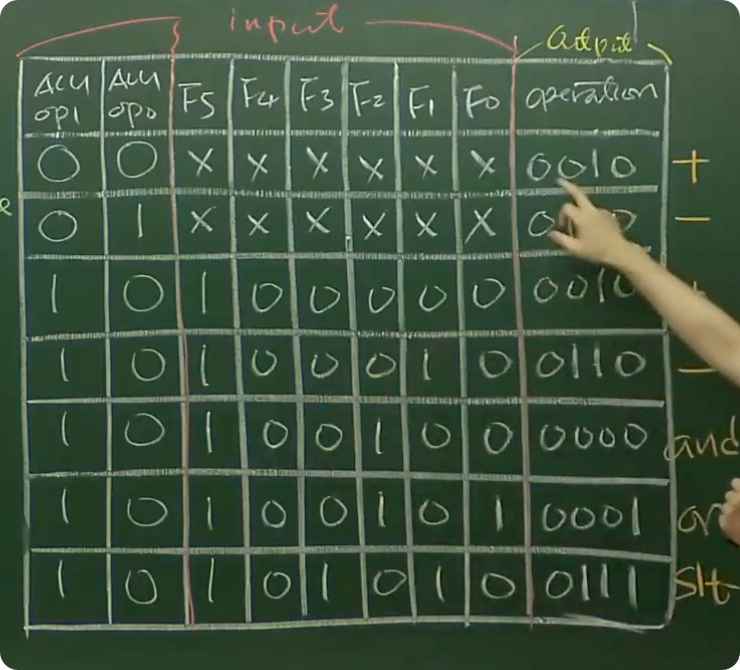 input
output
ALU op1 ALU op0 F5 F4 F3 F2 F1 F0 operation
0 0 X X X X X X 0010 +
0 1 X X X X X X 0 0 −
1 0 1 0 0 0 0 0 0010
1 0 1 0 0 0 1 0 0110 −
1 0 1 0 0 1 0 0 0000 and
1 0 1 0 0 1 0 1 0001 or
1 0 1 0 1 0 1 0 0111 slt